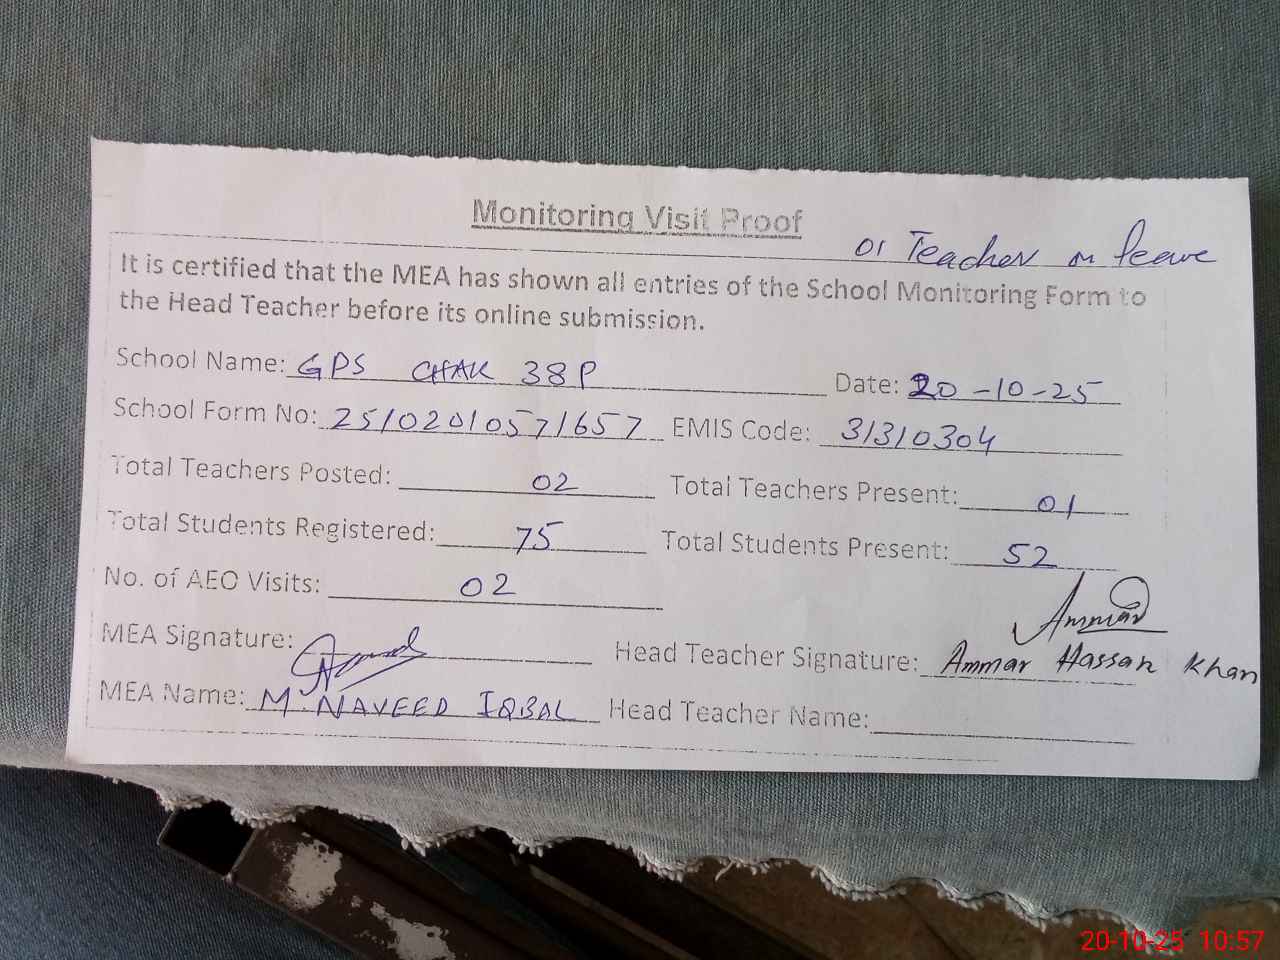 Monitoring Visit Proof
01 Teacher on leave
It is certified that the MEA has shown all entries of the School Monitoring Form to
the Head Teacher before its online submission.
School Name: GPS CHAK 38P Date: 20-10-25
School Form No: 25102010571657 EMIS Code: 31310304
Total Teachers Posted: 02 Total Teachers Present: 01
Total Students Registered: 75 Total Students Present: 52
No. of AEO Visits: 02
MEA Signature: Head Teacher Signature: Ammar Hassan Khan
MEA Name: M. NAVEED IQBAL Head Teacher Name:
20-10-25 10:57